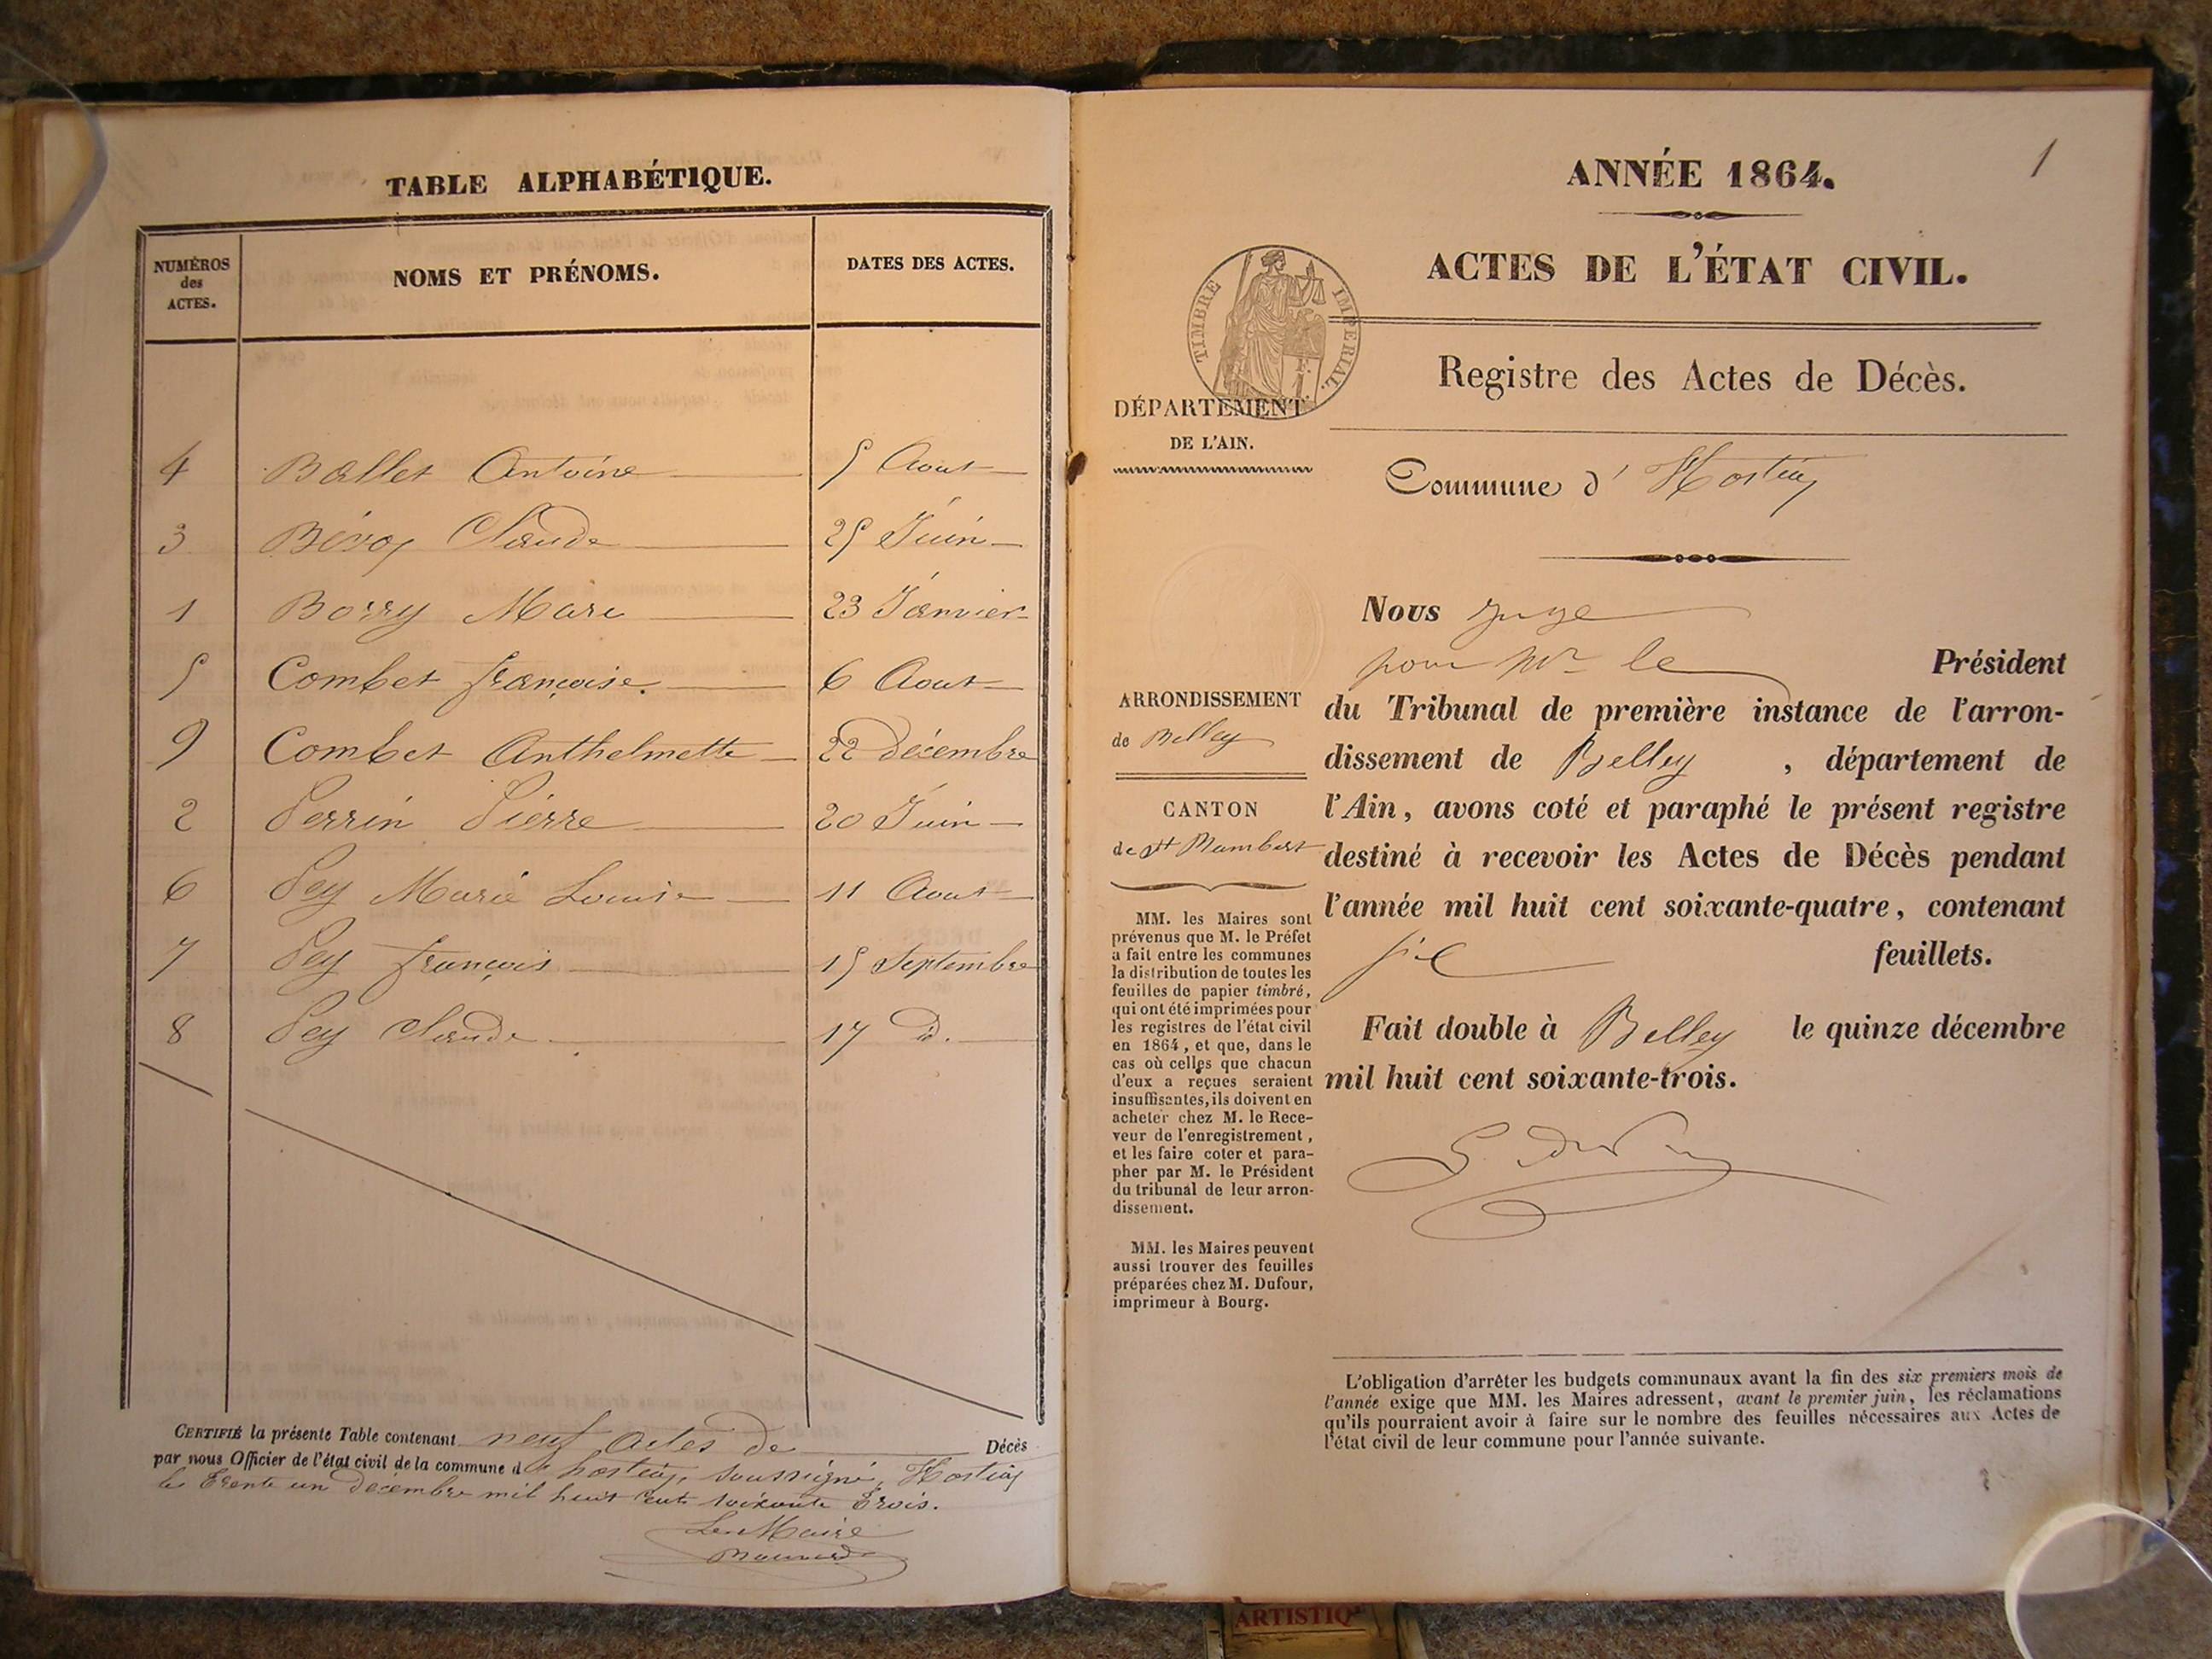 TABLE ALPHABÉTIQUE.
NUMÉROS des ACTES.
NOMS ET PRÉNOMS.
DATES DES ACTES.
4 Ballet Antoine 5 Aout
3 Bévoz Claude 25 Juin
1 Borry Marc 23 Janvier
5 Combet françoise. 6 Aout
9 Combet Anthelmette 22 décembre
2 Perrin Pierre 20 Juin
6 Pey Marie Louise 11 Aout
7 Pey françois 15 Septembre
8 Pey Claude 17 d.
CERTIFIÉ la présente Table contenant neuf Actes de Décès
par nous Officier de l'état civil de la commune d hostiaz, soussigné, Hostiaz
le trente un décembre mil huit cent soixante trois.
Le Maire
1
ANNÉE 1864.
ACTES DE L'ÉTAT CIVIL.
TIMBRE IMPERIAL.
Registre des Actes de Décès.
DÉPARTEMENT
DE L'AIN.
Commune d' Hostiaz
ARRONDISSEMENT
de Belley
CANTON
de St Rambert
MM. les Maires sont
prévenus que M. le Préfet
a fait entre les communes
la distribution de toutes les
feuilles de papier timbré,
qui ont été imprimées pour
les registres de l'état civil
en 1864, et que, dans le
cas où celles que chacun
d'eux a reçues seraient
insuffisantes, ils doivent en
acheter chez M. le Rece-
veur de l'enregistrement,
et les faire coter et para-
pher par M. le Président
du tribunal de leur arron-
dissement.
MM. les Maires peuvent
aussi trouver des feuilles
préparées chez M. Dufour,
imprimeur à Bourg.
Nous juge
pour Mr le Président
du Tribunal de première instance de l'arron-
dissement de Belley, département de
l'Ain, avons coté et paraphé le présent registre
destiné à recevoir les Actes de Décès pendant
l'année mil huit cent soixante-quatre, contenant
feuillets.
Fait double à Belley le quinze décembre
mil huit cent soixante-trois.
L'obligation d'arrêter les budgets communaux avant la fin des six premiers mois de
l'année exige que MM. les Maires adressent, avant le premier juin, les réclamations
qu'ils pourraient avoir à faire sur le nombre des feuilles nécessaires aux Actes de
l'état civil de leur commune pour l'année suivante.
ARTISTIQ